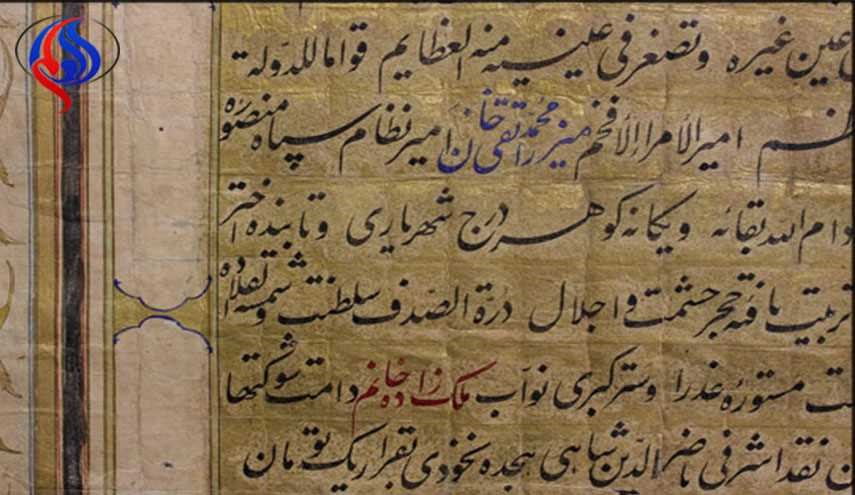 عین غیره وتصغر فی عینیه منه العظایم قواما للدولة
امیر الأمراء الأفخم میرزا محمد تقی خان امیر نظام سپاه منصوره
دام الله بقائه و یکانه کوهر درج شهریاری وتابنده اختر
تربیت یافته حجر حشمت و اجلال درة الصدف سلطنت و شمسة القلاده
مستوره عذرا وستر کبری نواب ملک زاده خانم دامت شوکتها
نقد اشرفی ناصرالدین شاهی هجده نخودی بقرار یک تومان